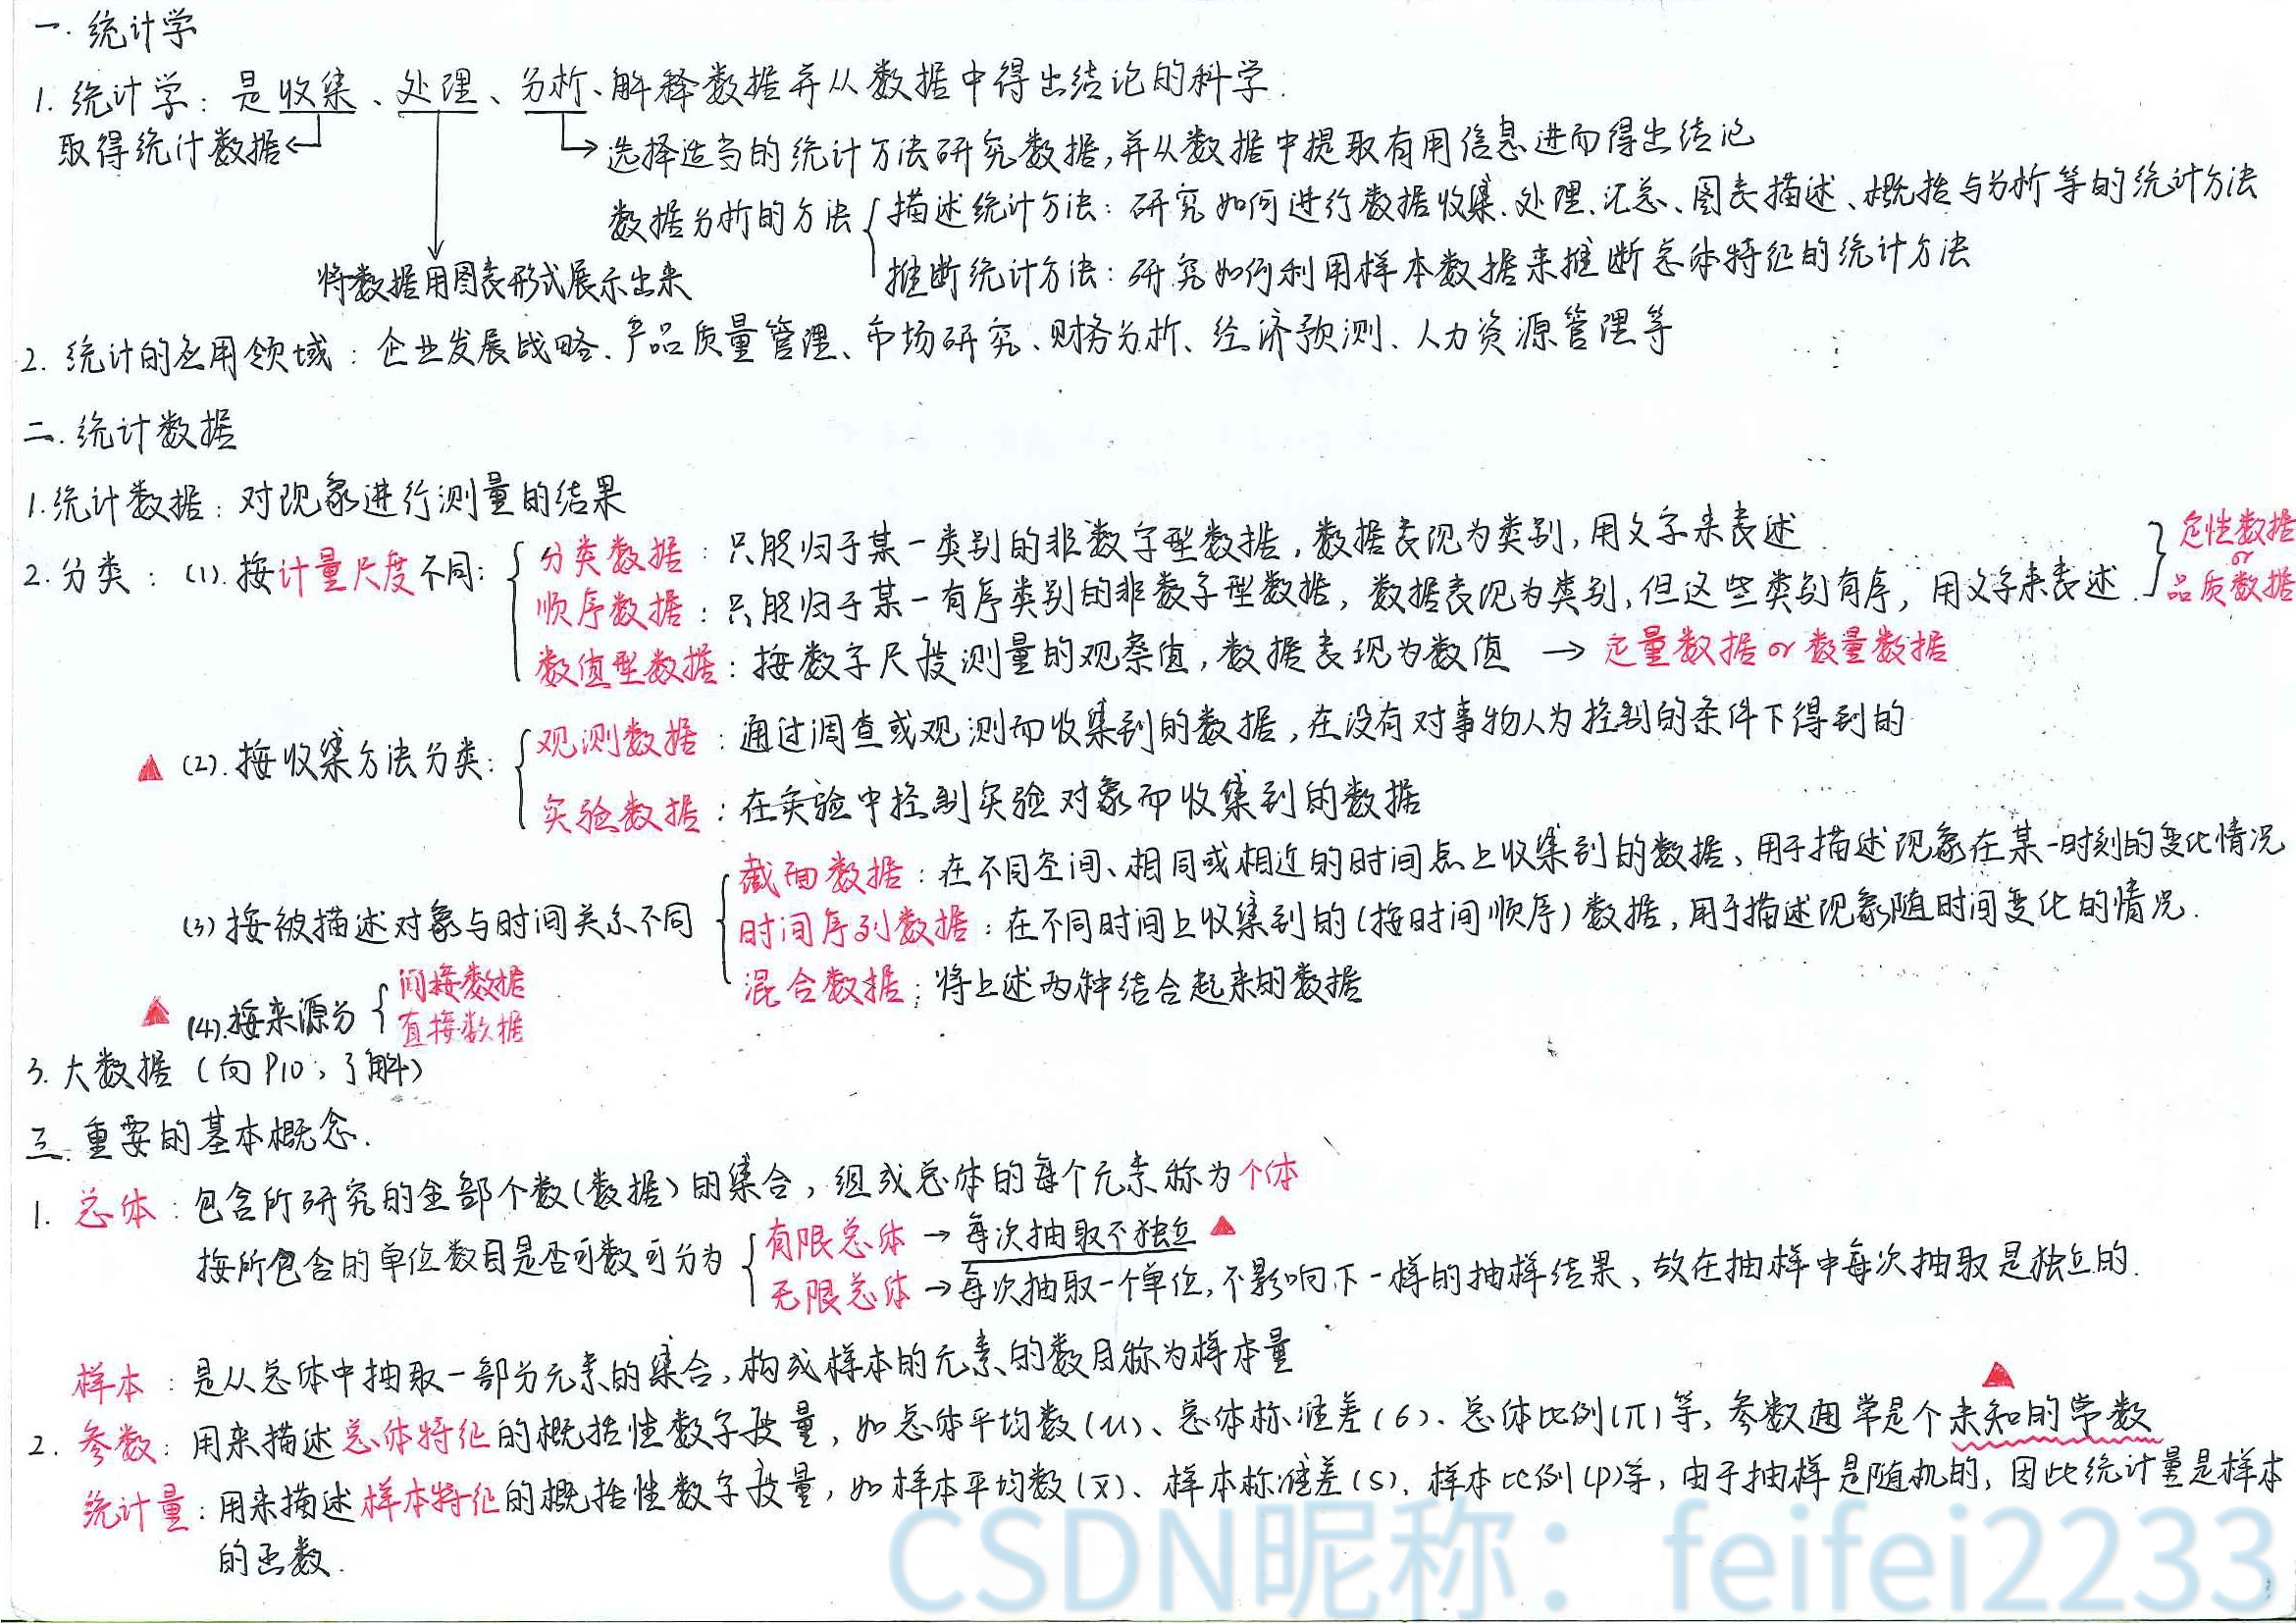 一. 统计学
1. 统计学：是收集、处理、分析、解释数据并从数据中得出结论的科学.
取得统计数据←
→选择适当的统计方法研究数据,并从数据中提取有用信息进而得出结论
数据分析的方法 { 描述统计方法：研究如何进行数据收集、处理、汇总、图表描述、概括与分析等的统计方法
推断统计方法：研究如何利用样本数据来推断总体特征的统计方法
将数据用图表形式展示出来
2. 统计的应用领域：企业发展战略、产品质量管理、市场研究、财务分析、经济预测、人力资源管理等
二. 统计数据
1. 统计数据：对现象进行测量的结果
2. 分类：(1). 按计量尺度不同: { 分类数据：只能归于某一类别的非数字型数据，数据表现为类别，用文字来表述
顺序数据：只能归于某一有序类别的非数字型数据，数据表现为类别，但这些类别有序，用文字来表述. } 定性数据 or 品质数据
数值型数据：按数字尺度测量的观察值，数据表现为数值 → 定量数据 or 数量数据
▲ (2). 按收集方法分类: { 观测数据：通过调查或观测而收集到的数据，在没有对事物人为控制的条件下得到的
实验数据：在实验中控制实验对象而收集到的数据
(3) 按被描述对象与时间关系不同 { 截面数据：在不同空间、相同或相近的时间点上收集到的数据、用于描述现象在某一时刻的变化情况
时间序列数据：在不同时间上收集到的(按时间顺序)数据，用于描述现象随时间变化的情况.
混合数据；将上述两种结合起来的数据
▲ (4). 按来源分 { 间接数据
直接数据
3. 大数据 (向P10，了解)
三. 重要的基本概念.
1. 总体：包含所研究的全部个数(数据)的集合，组成总体的每个元素称为个体
按所包含的单位数目是否可数可分为 { 有限总体 → 每次抽取不独立 ▲
无限总体 → 每次抽取一个单位，不影响下一样的抽样结果、故在抽样中每次抽取是独立的.
样本：是从总体中抽取一部分元素的集合，构成样本的元素的数目称为样本量
2. 参数：用来描述总体特征的概括性数字度量，如总体平均数(u)、总体标准差(6)、总体比例(π)等，参数通常是个未知的常数 ▲
统计量：用来描述样本特征的概括性数字度量，如样本平均数(x̄)、样本标准差(s)、样本比例(p)等，由于抽样是随机的，因此统计量是样本
的函数.
CSDN昵称：feifei2233